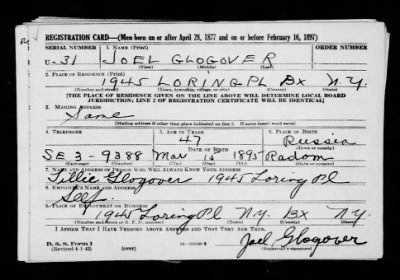 REGISTRATION CARD—(Men born on or after April 28, 1877 and on or before February 16, 1897)
SERIAL NUMBER 1. NAME (Print) ORDER NUMBER
U-31 JOEL GLOGOVER
(First) (Middle) (Last)
2. PLACE OF RESIDENCE (Print)
1945 LORING PL BX N.Y.
(Number and street) (Town, township, village, or city) (County) (State)
[THE PLACE OF RESIDENCE GIVEN ON THE LINE ABOVE WILL DETERMINE LOCAL BOARD
JURISDICTION; LINE 2 OF REGISTRATION CERTIFICATE WILL BE IDENTICAL]
3. MAILING ADDRESS
Same
[Mailing address if other than place indicated on line 2. If same insert word same]
4. TELEPHONE 5. AGE IN YEARS 6. PLACE OF BIRTH
47 Russia
DATE OF BIRTH (Town or county)
SE 3-9388 Mar 15 1895 Radom
(Exchange) (Number) (Mo.) (Day) (Yr.) (State or country)
7. NAME AND ADDRESS OF PERSON WHO WILL ALWAYS KNOW YOUR ADDRESS
Tillie Glogover 1945 Loring Pl
8. EMPLOYER'S NAME AND ADDRESS
Self
9. PLACE OF EMPLOYMENT OR BUSINESS
1945 Loring Pl N.Y. BX N.Y.
(Number and street or R. F. D. number) (Town) (County) (State)
I AFFIRM THAT I HAVE VERIFIED ABOVE ANSWERS AND THAT THEY ARE TRUE.
D. S. S. Form 1
(Revised 4-1-42) (over)
Joel Glogover
(Registrant's signature)